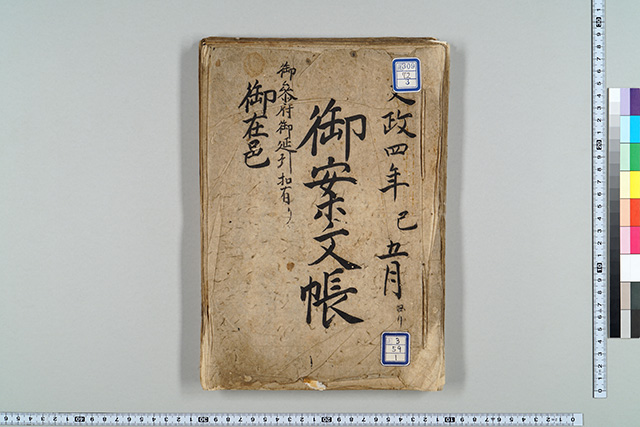 文政四年 巳 五月 ヨリ
御案文帳
御参府御延引扣有り
御在邑
3
59
1